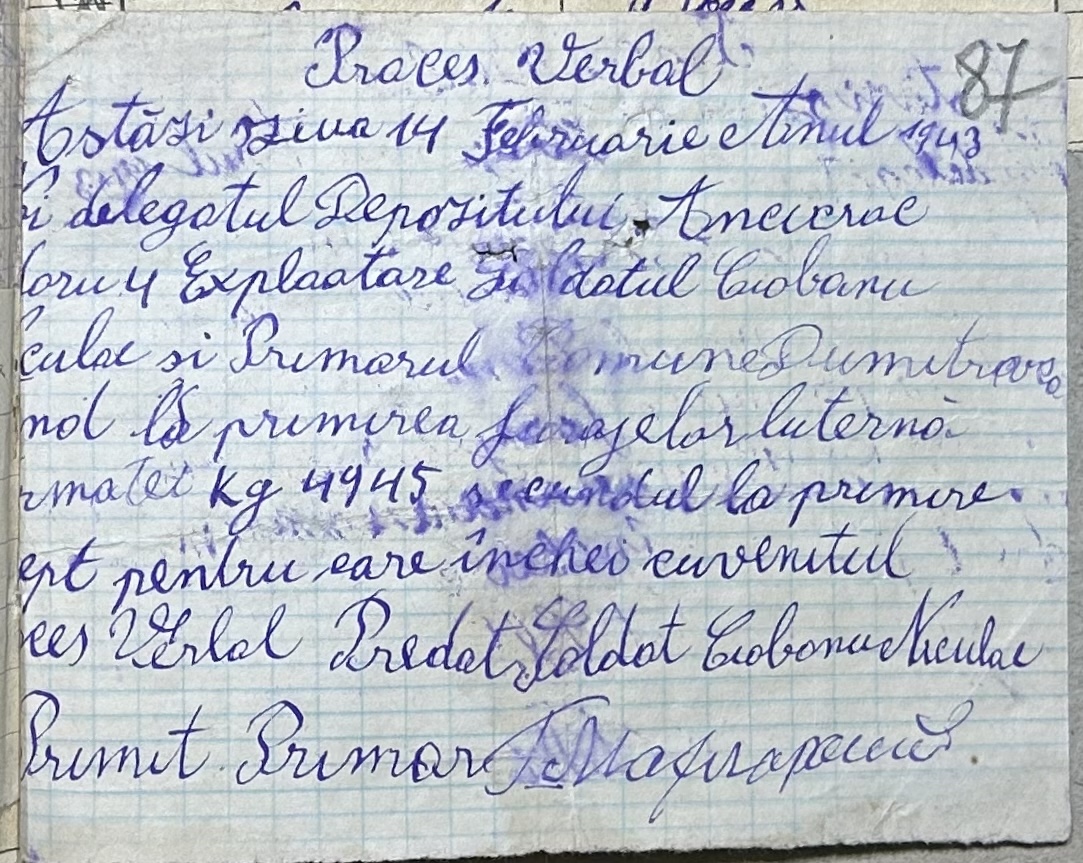 Proces Verbal
87
Astăzi ziua 14 Februarie Anul 1943
și delegatul Depozitului
oru 4 Explaatare Soldatul Ciobanu
culae si Primarul Comune Dumitrava
nd la primirea furajelor luterna
kg 4945 la primire
ept pentru care închei cuvenitul
ces Verbal Predat Soldat Ciobanu Niculae
Primit Primar